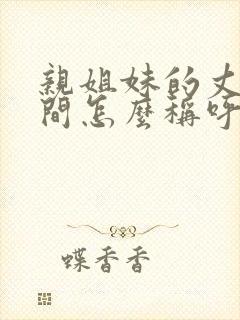 親姐妹的丈
間怎麼稱呼
蝶香香